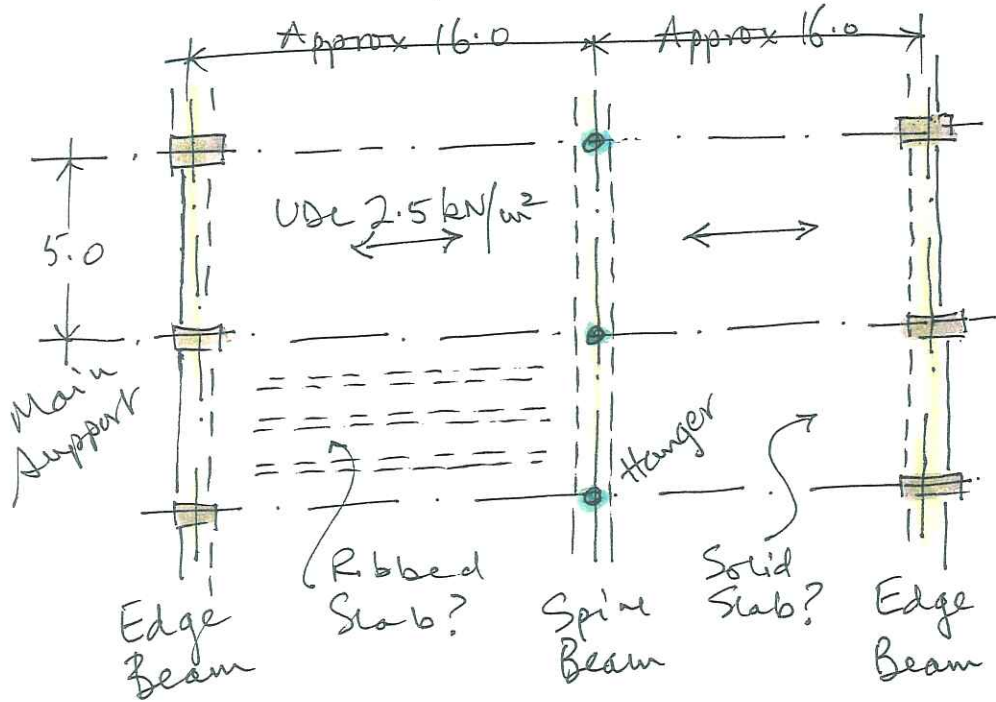 Approx 16.0
Approx 16.0
UDL 2.5 kN/m²
5.0
Main
Support
Hanger
Ribbed
Slab?
Solid
Slab?
Edge
Beam
Spine
Beam
Edge
Beam